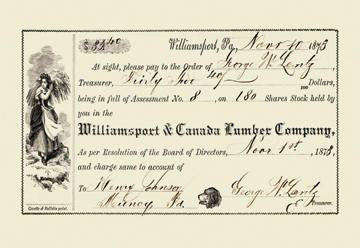 $32.40 Williamsport, Pa., Novr 10 1873
At sight, please pay to the Order of George W. Lentz,
Treasurer, Thirty Two 40/100 Dollars,
being in full of Assessment No. 8, on 180 Shares Stock held by
you in the
Williamsport & Canada Lumber Company,
As per Resolution of the Board of Directors, Novr 1st, 1873,
and charge same to account of
To Henry Johnson George W. Lentz
Muncy Pa. Treasurer.
Gazette & Bulletin print.